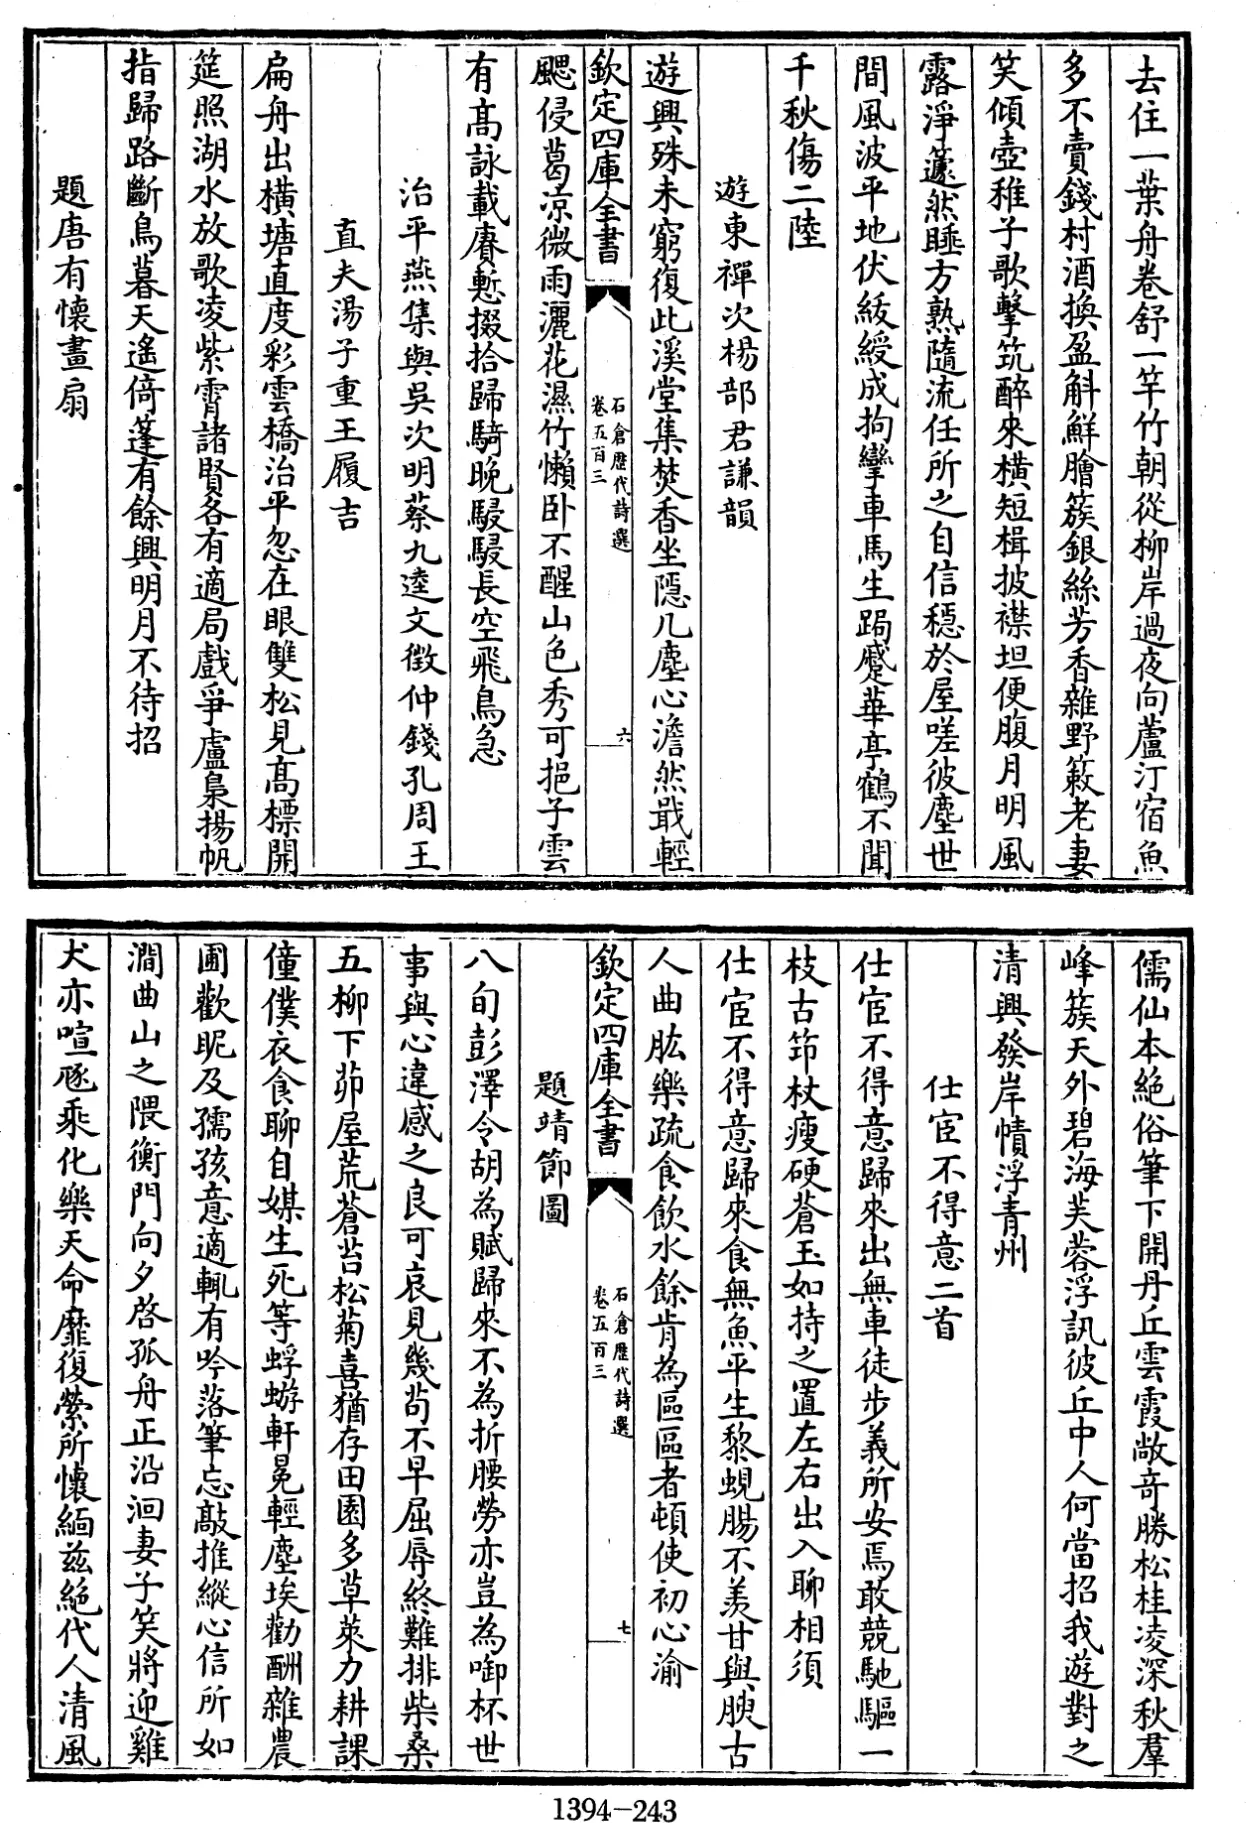 去住一葉舟卷舒一竿竹朝從柳岸過夜向蘆汀宿魚
多不賣錢村酒換盈斛鮮膾簇銀絲芳香雜野蔌老妻
笑傾壺稚子歌擊筑醉來橫短楫披襟坦便腹月明風
露淨蘧然睡方熟隨流任所之自信穩於屋嗟彼塵世
間風波平地伏紱綬成拘攣車馬生跼蹙華亭鶴不聞
千秋傷二陸
遊東禪次楊部君謙韻
遊興殊未窮復此溪堂集焚香坐隱几塵心澹然戢輕
欽定四庫全書
石倉歷代詩選
卷五百三
六
颸侵葛涼微雨灑花濕竹懶卧不醒山色秀可挹子雲
有高詠載賡慙掇拾歸騎晚駸駸長空飛鳥急
治平燕集與吳次明蔡九逵文徵仲錢孔周王
直夫湯子重王履吉
扁舟出橫塘直度彩雲橋治平忽在眼雙松見高標開
筵照湖水放歌凌紫霄諸賢各有適局戲爭盧梟揚帆
指歸路斷鳥暮天遙倚蓬有餘興明月不待招
題唐有懷畫扇
儒仙本絶俗筆下開丹丘雲霞敞奇勝松桂凌深秋羣
峰簇天外碧海芙蓉浮訊彼丘中人何當招我遊對之
清興發岸幘浮青州
仕宦不得意二首
仕宦不得意歸來出無車徒步義所安焉敢競馳驅一
枝古筇杖瘦硬蒼玉如持之置左右出入聊相須
仕宦不得意歸來食無魚平生黎蜆腸不羨甘與腴古
人曲肱樂疏食飲水餘肯為區區者頓使初心渝
欽定四庫全書
石倉歷代詩選
卷五百三
七
題靖節圖
八旬彭澤令胡為賦歸來不為折腰勞亦豈為啣杯世
事與心違感之良可哀見幾苟不早屈辱終難排柴桑
五柳下茆屋荒蒼苔松菊喜猶存田園多草萊力耕課
僮僕衣食聊自媒生死等蜉蝣軒冕輕塵埃勸酬雜農
圃歡昵及孺孩意適輒有吟落筆忘敲推縱心信所如
澗曲山之隈衡門向夕啓孤舟正沿洄妻子笑將迎雞
犬亦喧豗乘化樂天命靡復縈所懷緬兹絶代人清風
1394-243